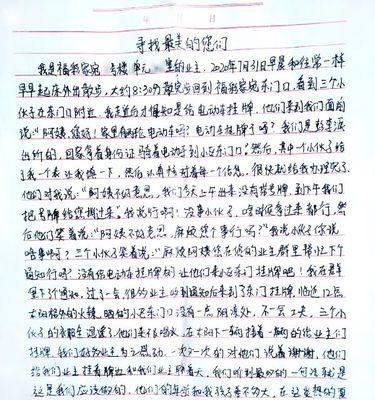 年 月 日
寻找最美的您们
我是福我家宛 号楼 单元 的业主，2020年7月31日早晨和往常一样
早早起床外出散步，大约8:30散完步回到福我家宛东门口，看到三个小
伙子在东门口附近，我走近后才得知是给电动车挂牌，他们来到我们面前
说：“阿姨，您好！家里有两轮电动车吗？电动车挂牌了吗？我们是
出所的，回家拿着身份证骑着电动车到小区东门口”然后，其中一个小伙子给
了我一个表让我填一下，然后认真核对着每一个信息，很快就给我办理完了，
他们对我说：“阿姨不好意思，我们今天上午出来没有带号牌，到下午我们
把号牌给您捎过来。”我说行啊！没事小伙子，啥时候拿过来都行，然
后他们笑着说：“阿姨不好意思，麻烦您个事行吗？”我说小伙子你说
啥事啊？三个小伙子笑着说：“麻烦阿姨您在您的业主群里帮忙下个
通知行吗？没有给电动车挂牌的让他们来小区东门口挂牌吧！我在群
里下了通知，过了一会，很多业主收到通知后来到了东门挂牌，临近12点
太阳格外的火辣，晒的小区东门口没有一点阴凉处，不一会工夫，三个小
伙子的衣服全湿透了，他们来不及喝水，在太阳下一辆接着一辆的给业主们
挂牌，我们好多业主为之感动，一次又一次的对他们说着谢谢，他们
给我们业主挂着牌还和我们业主聊着天，我们听到最多的一句话就是
这是我们应该做的，他们的年龄和我孩子差不多大，在这炎热的夏